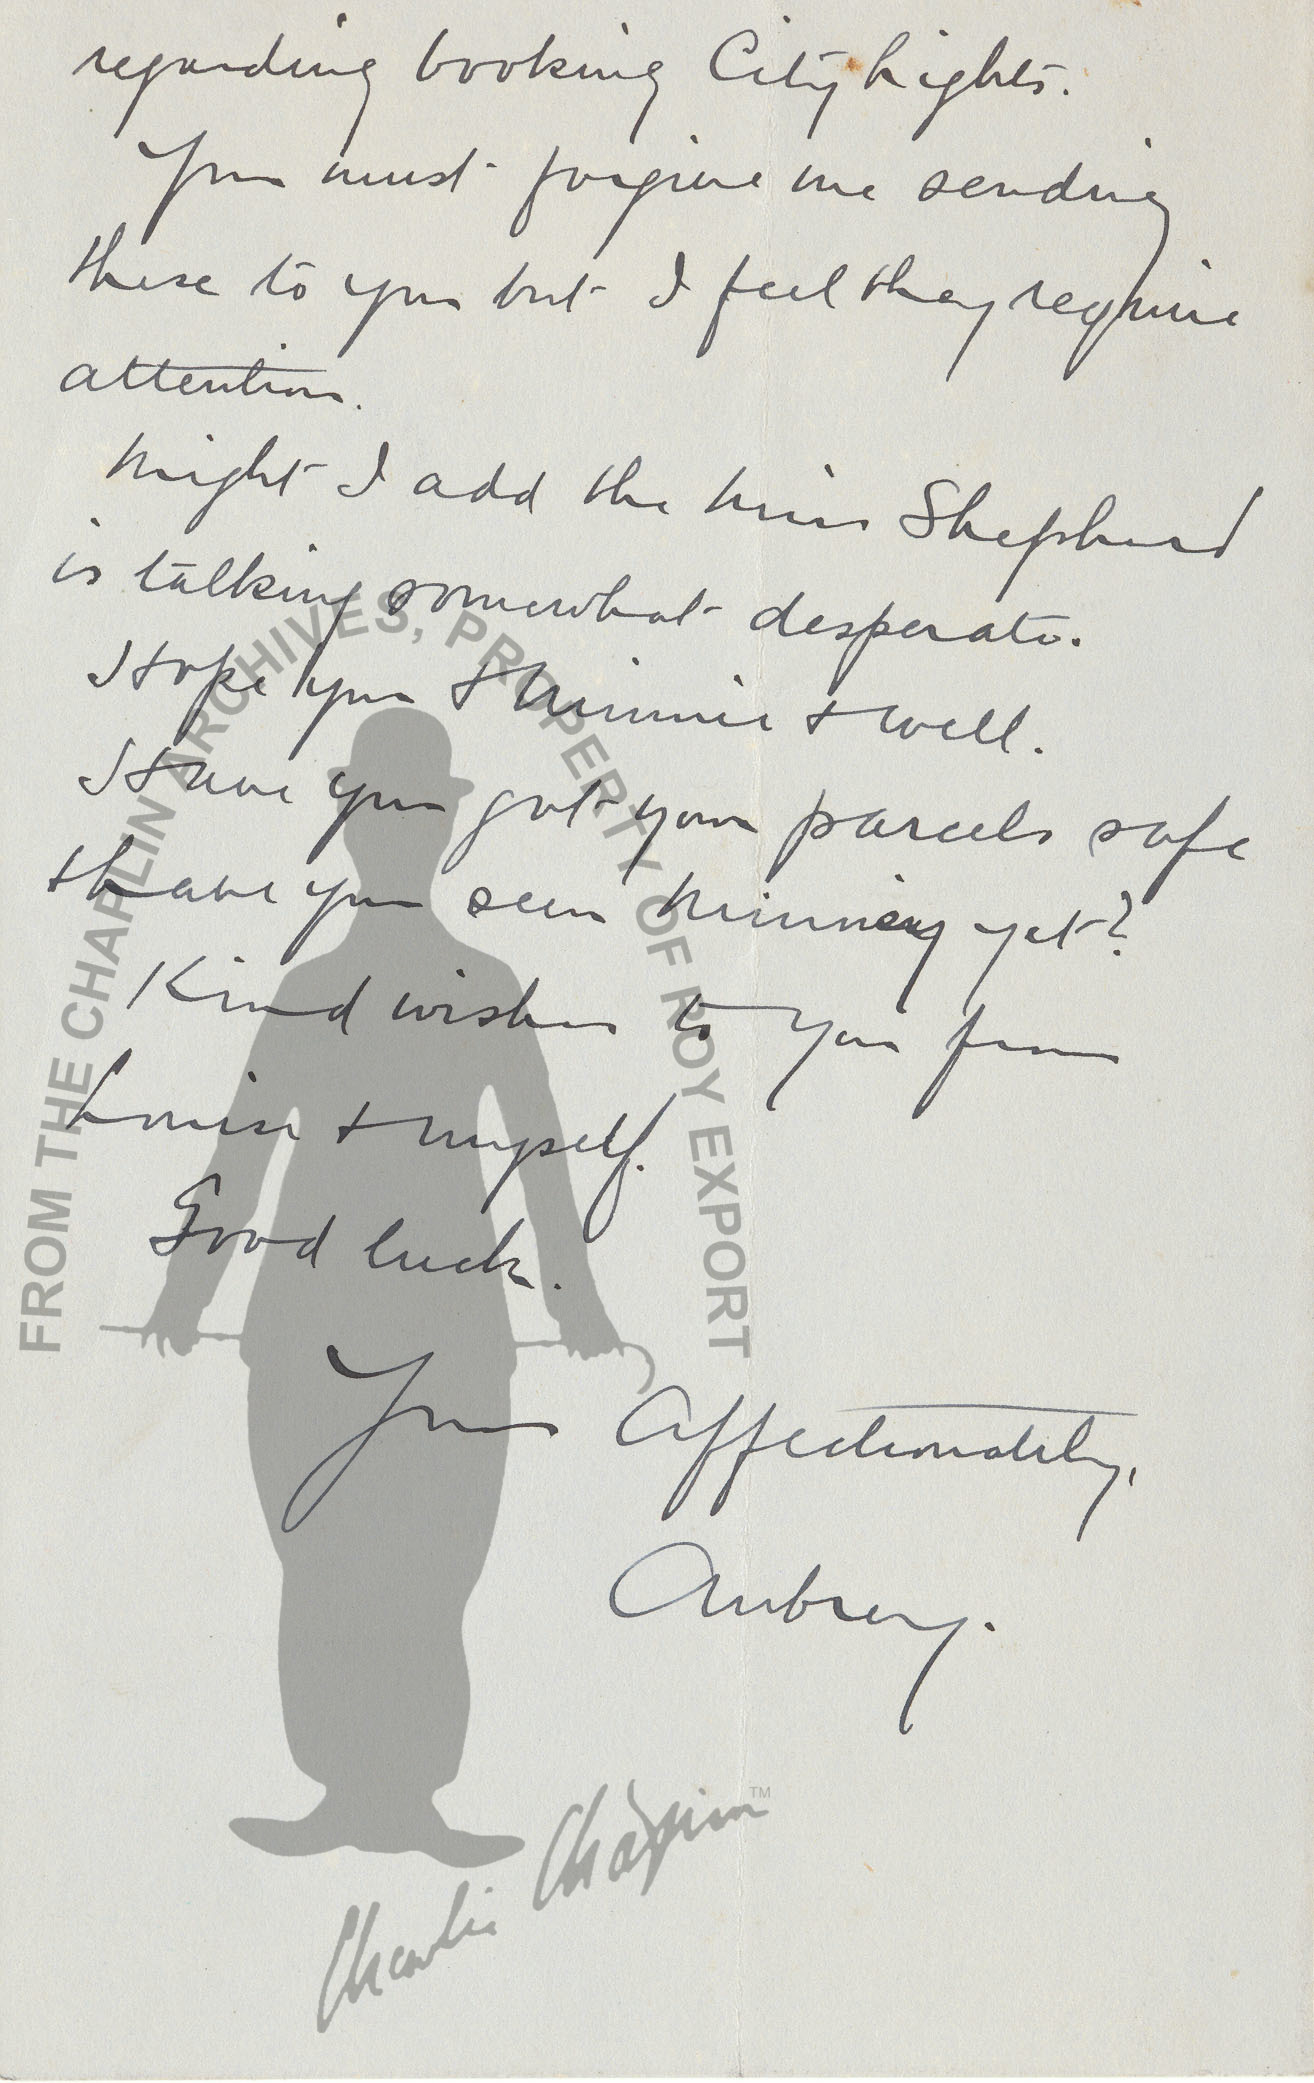 regarding booking City Lights.
You must forgive me sending
these to you but I feel they require
attention.
Might I add the Miss Shepherd
is talking somewhat desperate.
Hope you & Minnie + well.
Have you got your parcels safe
& have you seen Minney yet?
Kind wishes to you from
Louise & myself.
Good luck.
Yours Affectionately,
Aubrey.
FROM THE CHAPLIN ARCHIVES, PROPERTY OF ROY EXPORT
Charlie Chaplin™